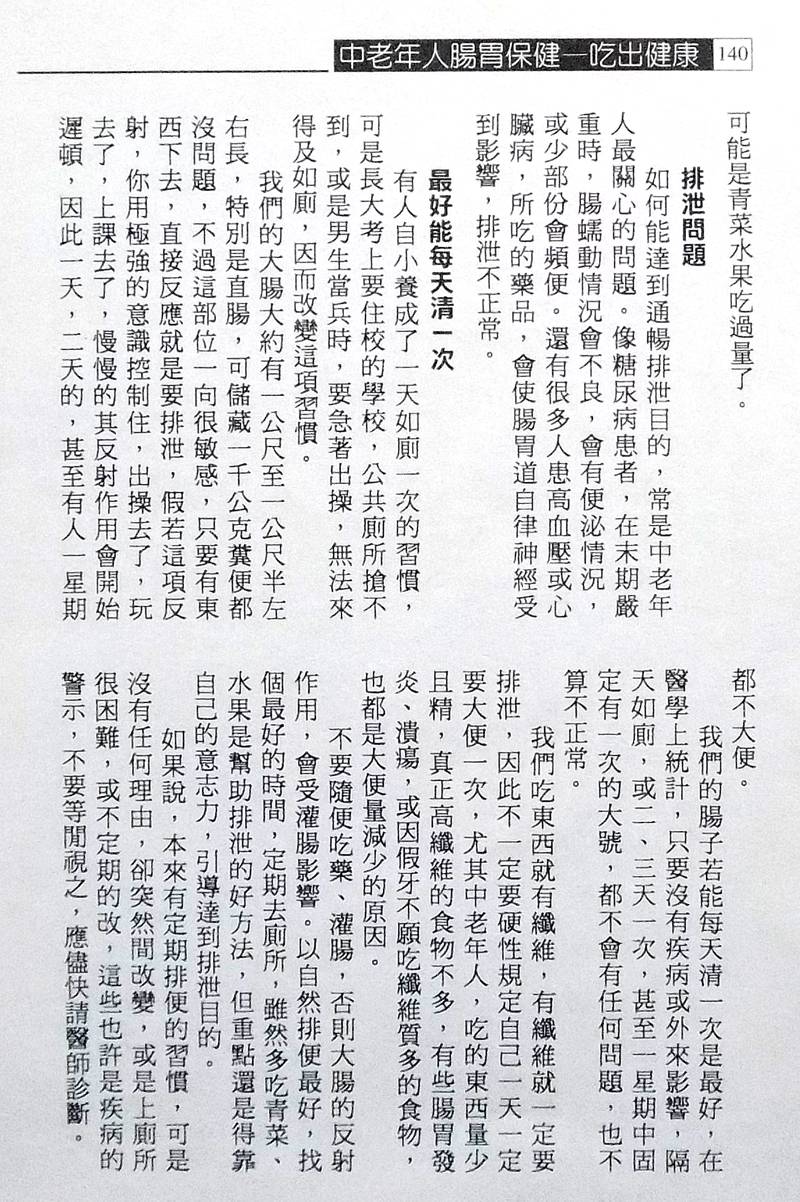 中老年人腸胃保健—吃出健康 140
可能是青菜水果吃過量了。
排泄問題
如何能達到通暢排泄目的，常是中老年
人最關心的問題。像糖尿病患者，在末期嚴
重時，腸蠕動情況會不良，會有便泌情況，
或少部份會頻便。還有很多人患高血壓或心
臟病，所吃的藥品，會使腸胃道自律神經受
到影響，排泄不正常。
最好能每天清一次
有人自小養成了一天如廁一次的習慣，
可是長大考上要住校的學校，公共廁所搶不
到，或是男生當兵時，要急著出操，無法來
得及如廁，因而改變這項習慣。
我們的大腸大約有一公尺至一公尺半左
右長，特別是直腸，可儲藏一千公克糞便都
沒問題，不過這部位一向很敏感，只要有東
西下去，直接反應就是要排泄，假若這項反
射，你用極強的意識控制住，出操去了，玩
去了，上課去了，慢慢的其反射作用會開始
遲頓，因此一天，二天的，甚至有人一星期
都不大便。
我們的腸子若能每天清一次是最好，在
醫學上統計，只要沒有疾病或外來影響，隔
天如廁，或二、三天一次，甚至一星期中固
定有一次的大號，都不會有任何問題，也不
算不正常。
我們吃東西就有纖維，有纖維就一定要
排泄，因此不一定要硬性規定自己一天一定
要大便一次，尤其中老年人，吃的東西量少
且精，真正高纖維的食物不多，有些腸胃發
炎、潰瘍，或因假牙不願吃纖維質多的食物，
也都是大便量減少的原因。
不要隨便吃藥、灌腸，否則大腸的反射
作用，會受灌腸影響。以自然排便最好，找
個最好的時間，定期去廁所，雖然多吃青菜、
水果是幫助排泄的好方法，但重點還是得靠
自己的意志力，引導達到排泄目的。
如果說，本來有定期排便的習慣，可是
沒有任何理由，卻突然間改變，或是上廁所
很困難，或不定期的改，這些也許是疾病的
警示，不要等閒視之，應儘快請醫師診斷。